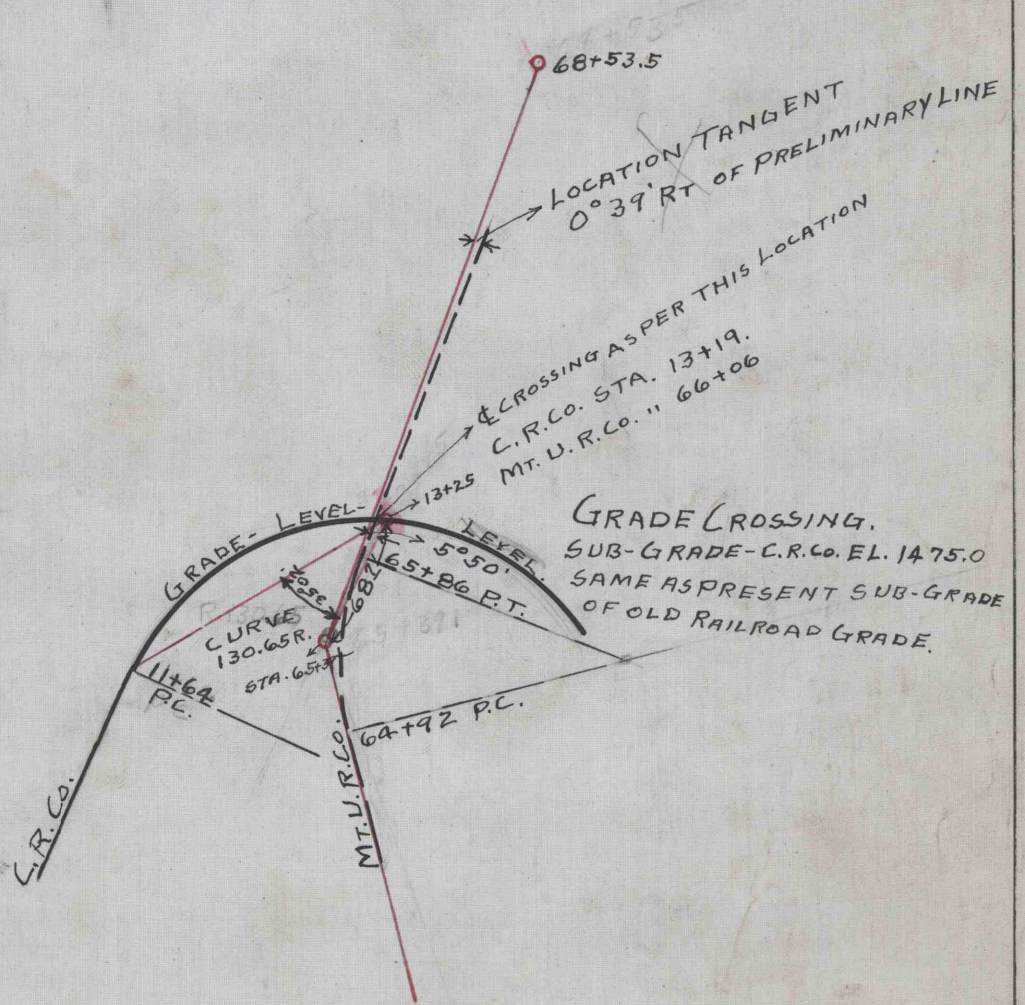 68+53.5
LOCATION TANGENT
0° 39' RT OF PRELIMINARY LINE
℄ CROSSING AS PER THIS LOCATION
C.R.CO. STA. 13+19.
MT. U.R.CO. " 66+06
13+25
GRADE - LEVEL -
LEVEL.
5°50'
GRADE CROSSING.
SUB-GRADE-C.R.CO. EL. 1475.0
SAME AS PRESENT SUB-GRADE
OF OLD RAILROAD GRADE.
65+86 P.T.
682
CURVE
130.65R.
STA. 65+3
11+64
P.C.
64+92 P.C.
MT. U.R.CO.
C.R. CO.